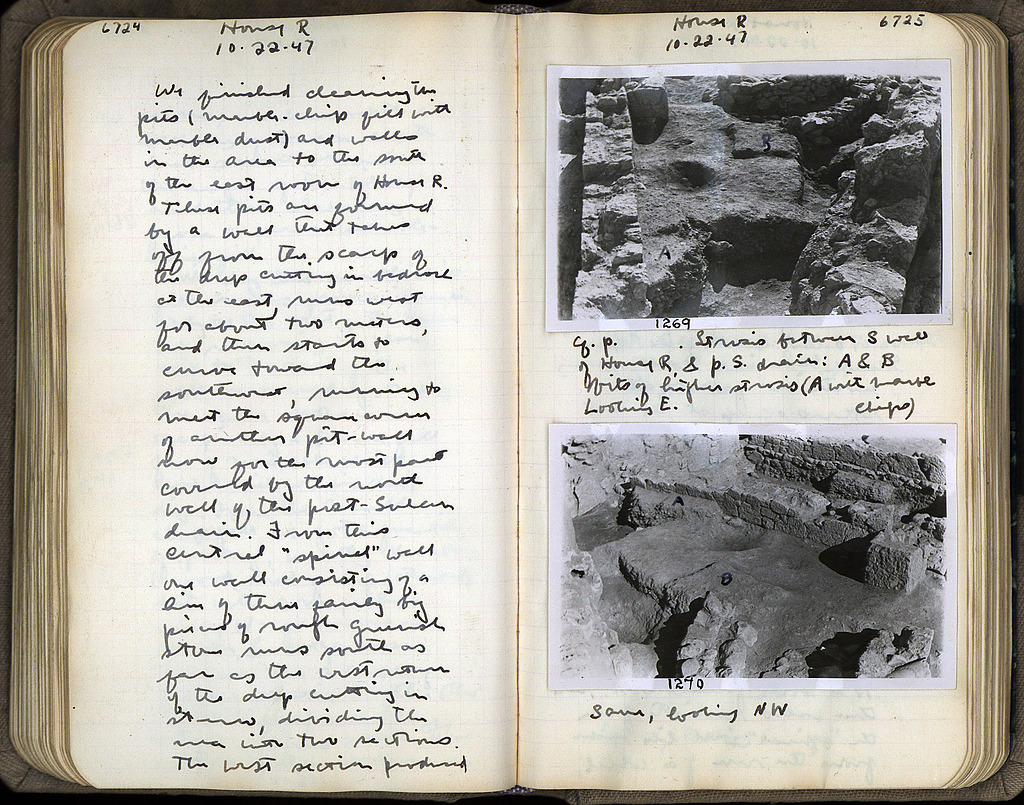 6724
House R
10-22-47
We finished cleaning the
pits (marble-chip fill with
marble dust) and walls
in the area to the south
of the east room of House R.
These pits are formed
by a wall that takes
off from the scarp of
the deep cutting in bedrock
at the east, runs west
for about two meters,
and then starts to
curve toward the
southwest, running to
meet the square corner
of another pit-wall
now for the most part
covered by the north
wall of the post-Sullan
drain. From this
central "spinal" wall
one wall consisting of a
line of three fairly big
pieces of rough greenish
stone runs south as
far as the west return
of the deep cutting in
stereo, dividing the
area into two sections.
The west section produced
House R
10-22-47
6725
A
B
1269
cf. p. . Strosis between S wall
of House R, & p. S. drain: A & B
bits of higher strosis (A with marble
Looking E. chips)
A
B
1270
Same, looking NW